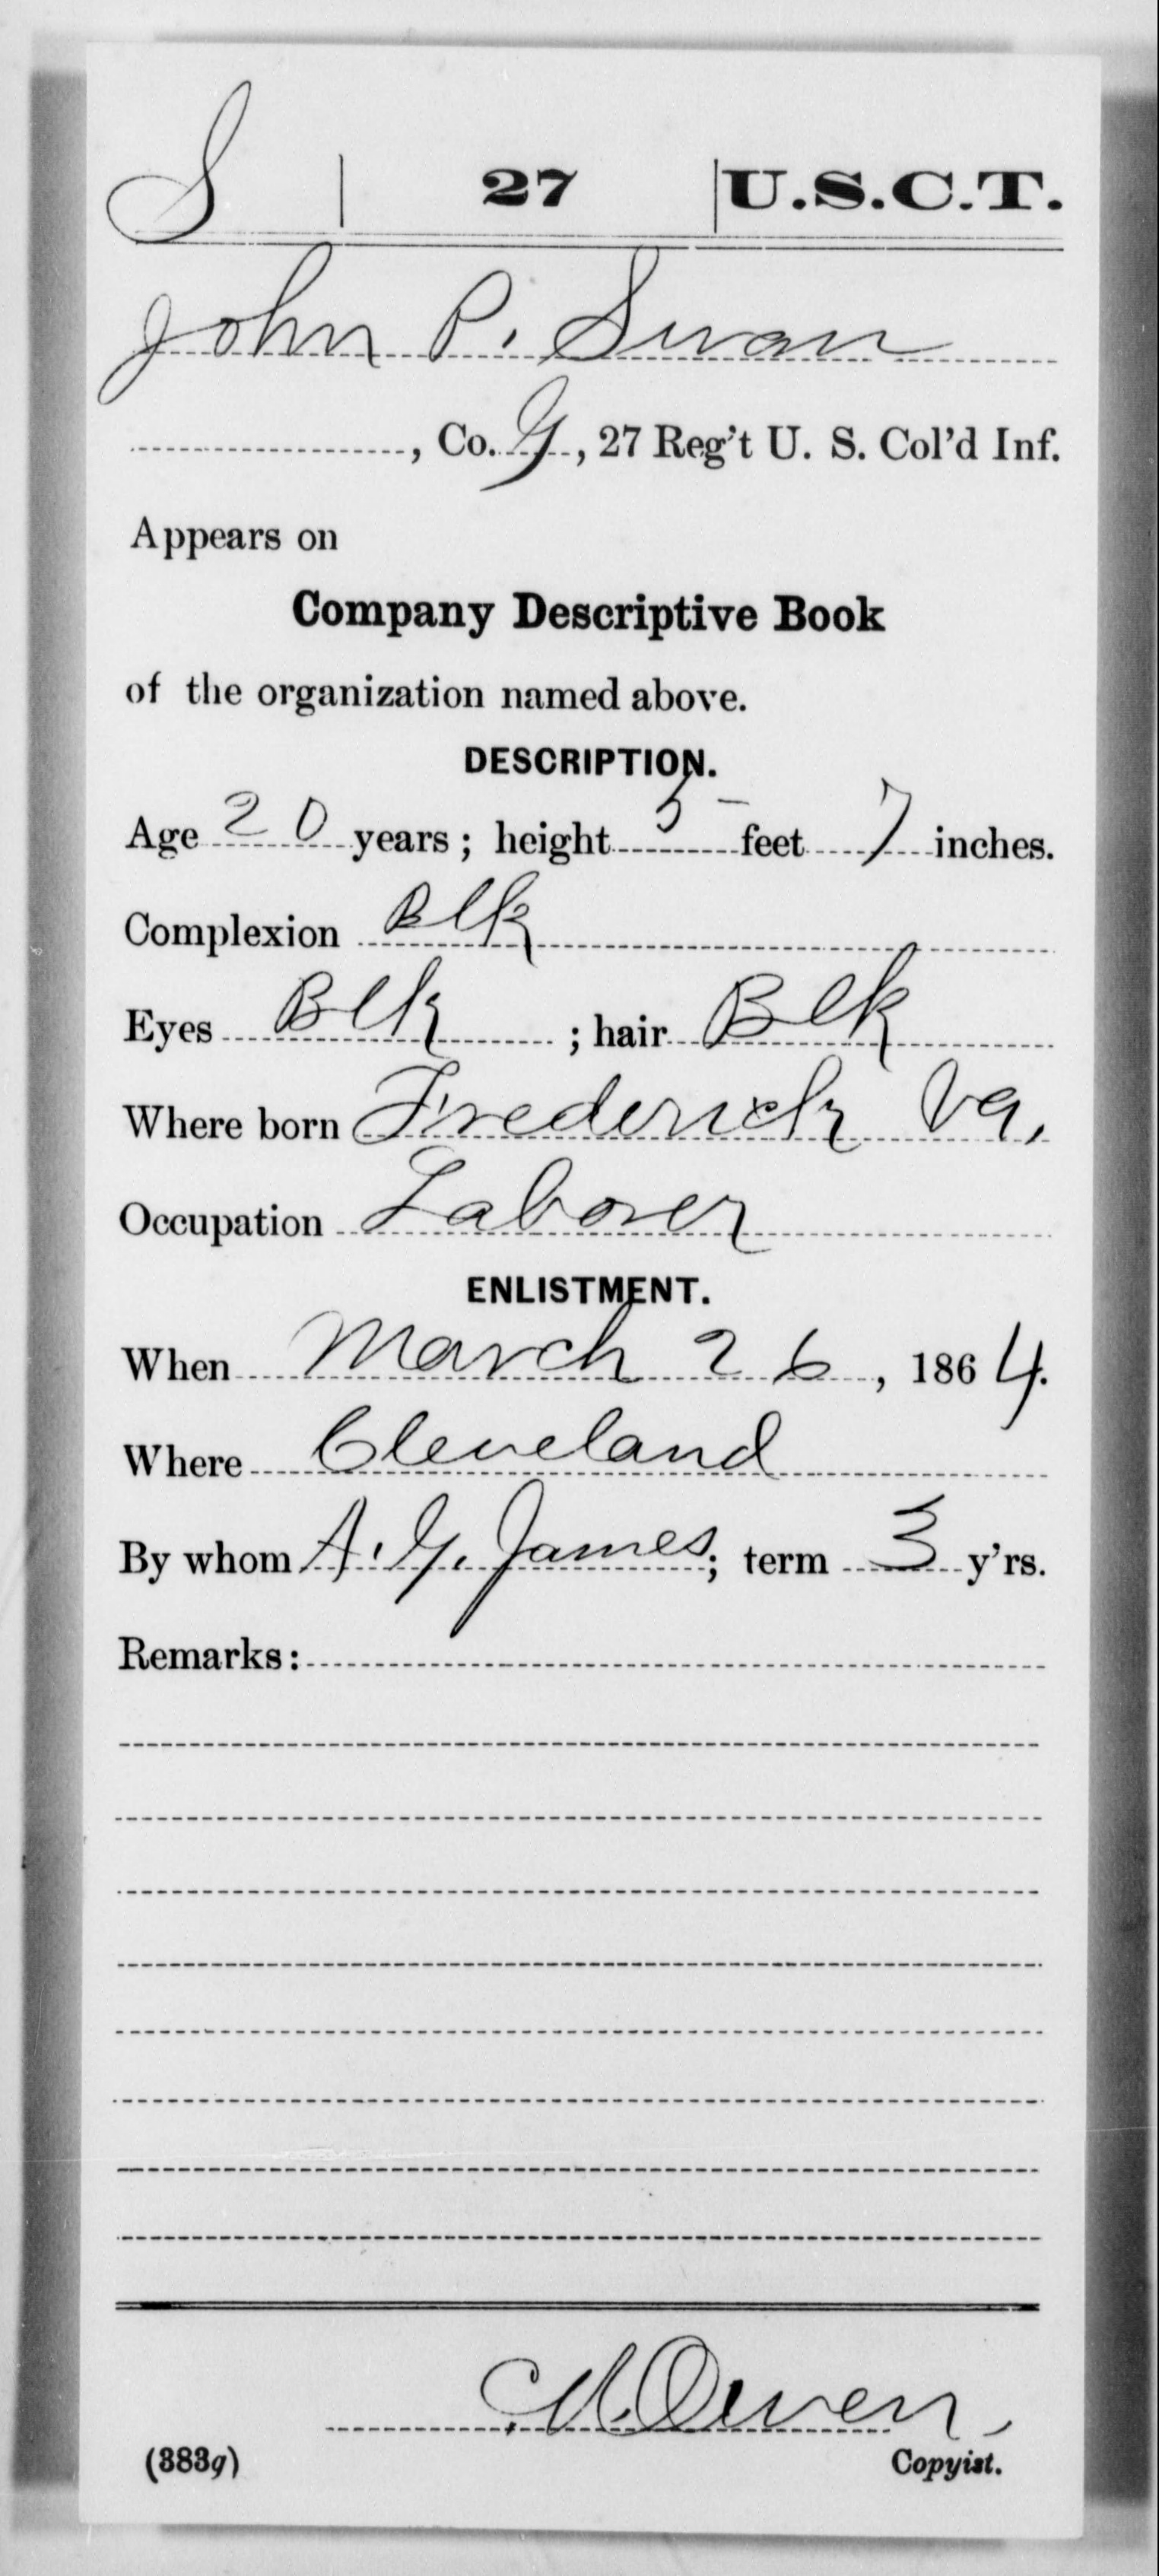 S | 27 | U.S.C.T.
John P. Swan
, Co. G, 27 Reg't U. S. Col'd Inf.
Appears on
Company Descriptive Book
of the organization named above.
DESCRIPTION.
Age 20 years; height 5 feet 7 inches.
Complexion Blk
Eyes Blk; hair Blk
Where born Frederick Va,
Occupation Laborer
ENLISTMENT.
When March 26, 1864.
Where Cleveland
By whom A. G. James; term 3 y'rs.
Remarks:
M. Owen,
(383g) Copyist.